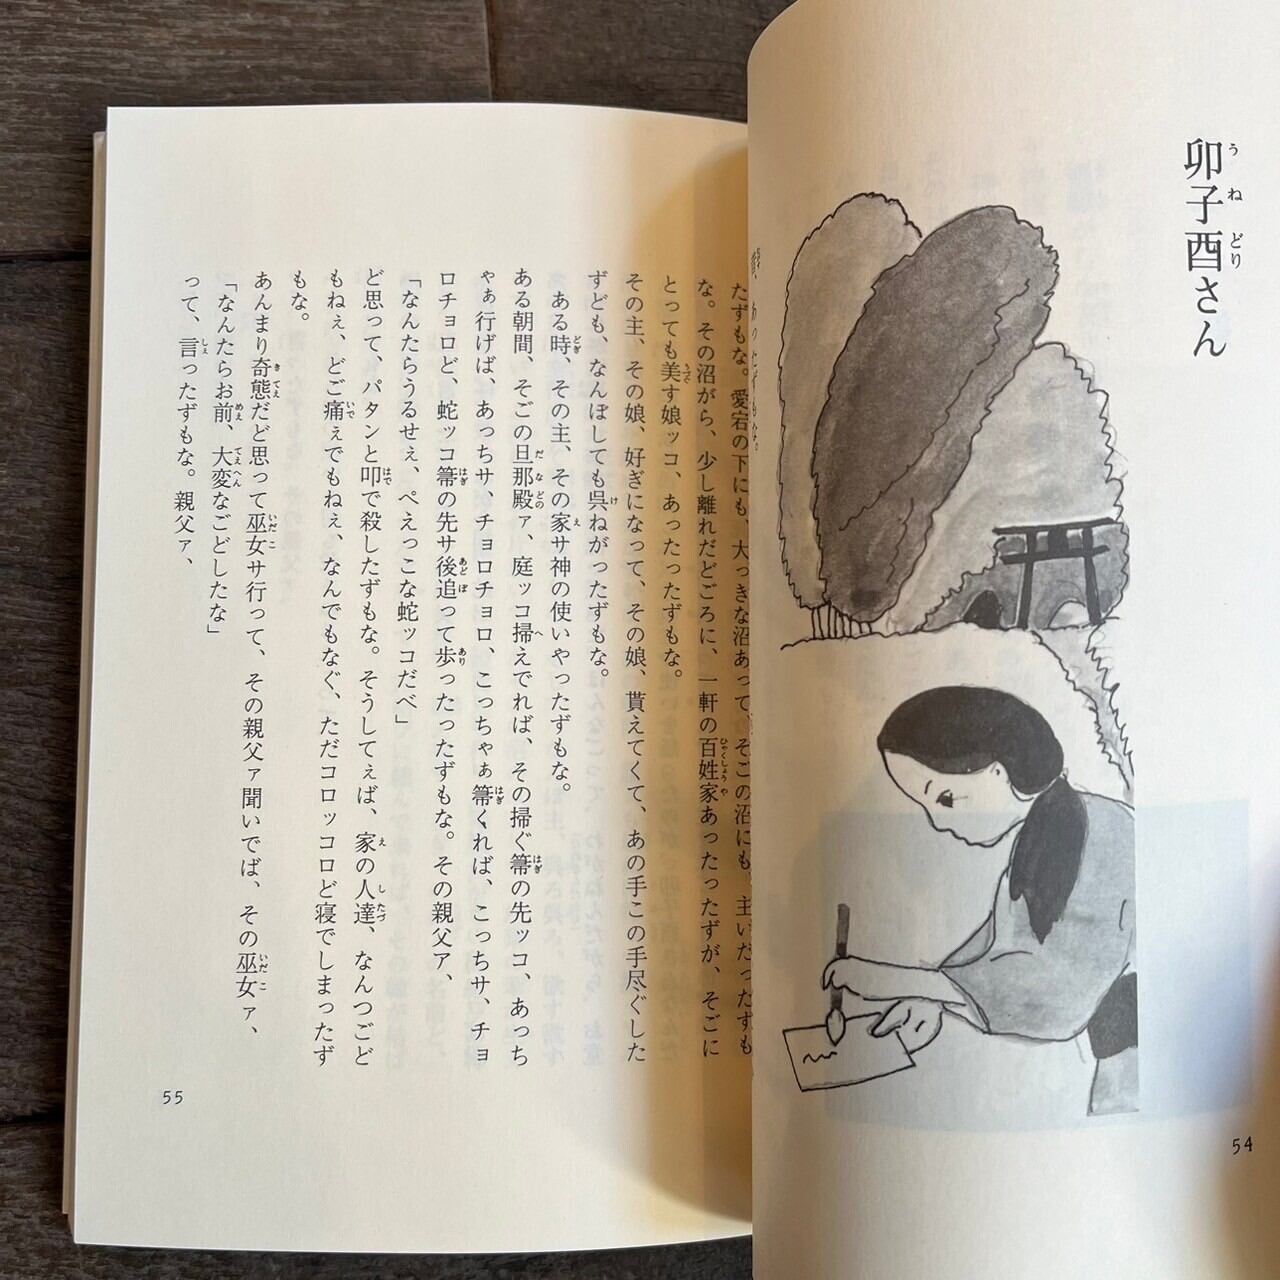 卯子酉さん
54
たずもな。愛宕の下にも、大っきな沼あって、そごの沼にも、主いだったずも
な。その沼がら、少し離れだどごろに、一軒の百姓家あったったずが、そごに
とっても美す娘ッコ、あったったずもな。
その主、その娘、好ぎになって、その娘、貰えてくて、あの手この手尽ぐした
ずども、なんぼしても呉ねがったずもな。
ある時、その主、その家サ神の使いやったずもな。
ある朝間、そごの旦那殿ァ、庭ッコ掃えでれば、その掃ぐ箒の先ッコ、あっち
ゃぁ行げば、あっちサ、チョロチョロ、こっちゃぁ箒くれば、こっちサ、チョ
ロチョロど、蛇ッコ箒の先サ後追って歩ったったずもな。その親父ア、
「なんたらうるせぇ、ぺえっこな蛇ッコだべ」
ど思って、パタンと叩で殺したずもな。そうしてぇば、家の人達、なんつごど
もねぇ、どご痛ぇでもねぇ、なんでもなぐ、ただコロッコロど寝でしまったず
もな。
あんまり奇態だど思って巫女サ行って、その親父ァ聞いでば、その巫女ァ、
「なんたらお前、大変なごどしたな」
って、言ったずもな。親父ァ、
55